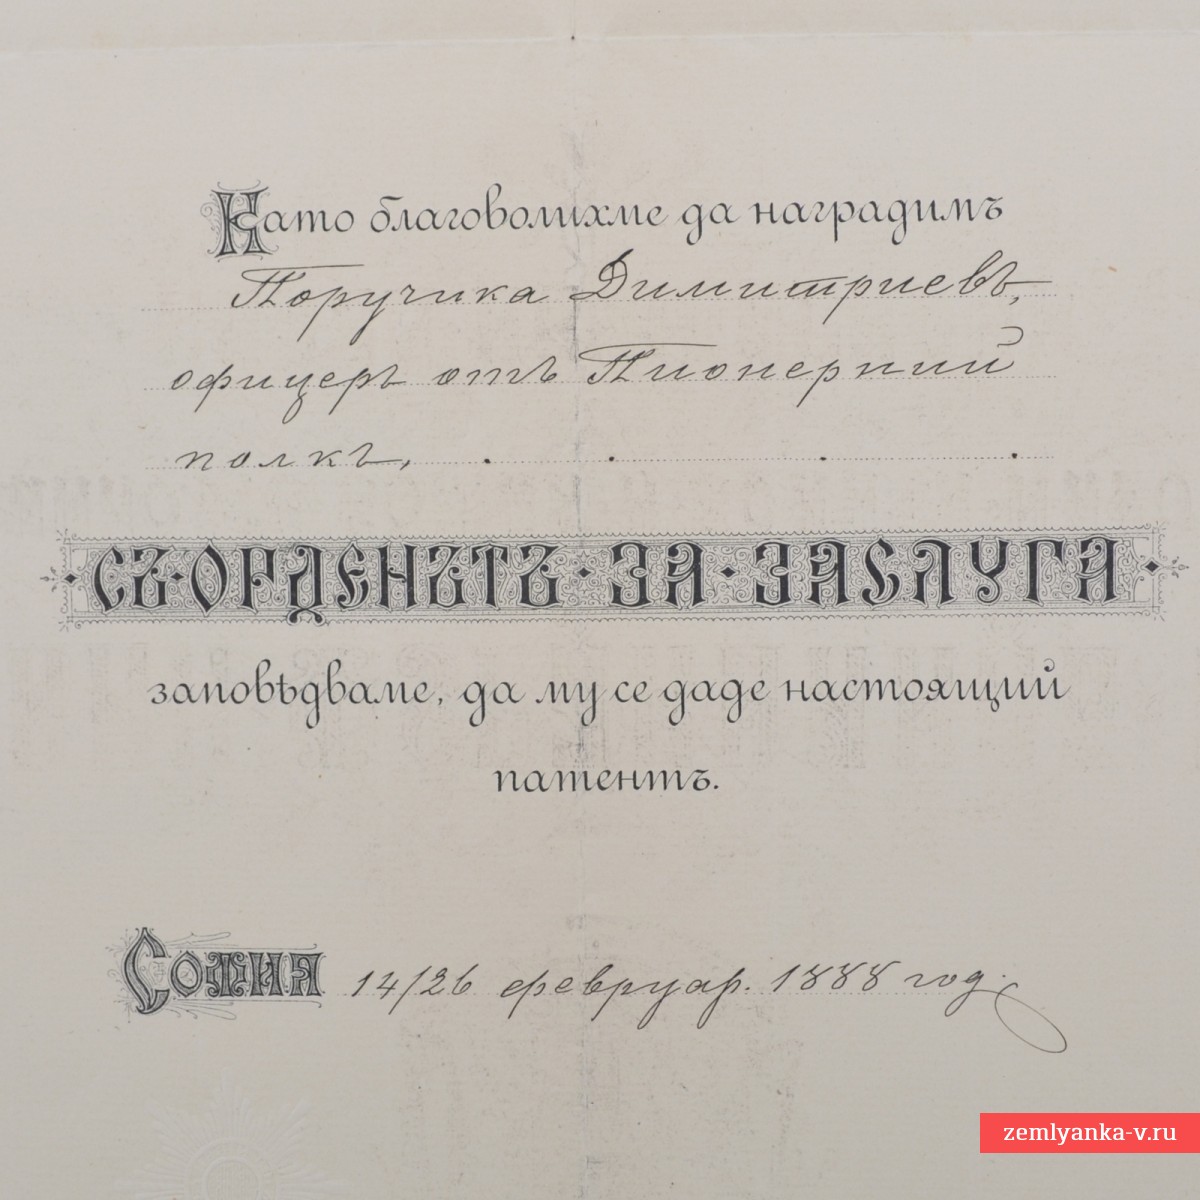 Като благоволихме да наградимъ
Поручика Димитриевъ,
офицеръ отъ Пионерний
полкъ, . . . .
· СЪ · ОРДЕНЪТЪ · ЗА · ЗАСЛУГА ·
заповѣдваме, да му се даде настоящий
патентъ.
СОФИЯ 14/26 февруар. 1888 год.
zemlyanka-v.ru